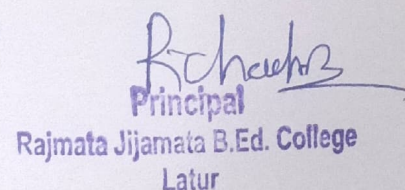 Principal
Rajmata Jijamata B.Ed. College
Latur